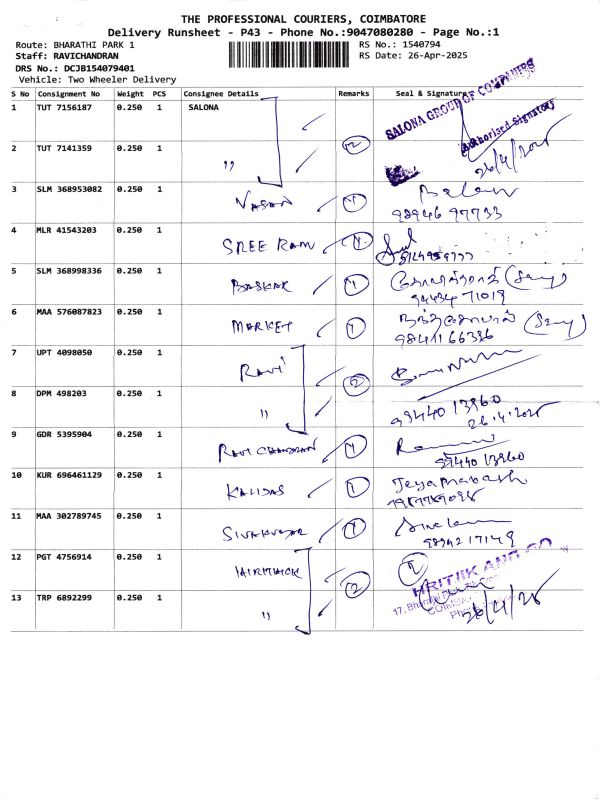 THE PROFESSIONAL COURIERS, COIMBATORE
Delivery Runsheet - P43 - Phone No.:9047080280 - Page No.:1
Route: BHARATHI PARK 1 RS No.: 1540794
Staff: RAVICHANDRAN RS Date: 26-Apr-2025
DRS No.: DCJB154079401
Vehicle: Two Wheeler Delivery
S No Consignment No Weight PCS Consignee Details Remarks Seal & Signature
SALONA GROUP OF COMPANIES
1 TUT 7156187 0.250 1 SALONA
Authorised Signatory
2 TUT 7141359 0.250 1 " 2
26/4/2025
3 SLM 368953082 0.250 1 VASAN 1
98946 97733
4 MLR 41543203 0.250 1 SREE RAM 1
5 SLM 368998336 0.250 1 BASKAR 1
94434 71019
6 MAA 576087823 0.250 1 MARKET 1
98411 66386
7 UPT 4098050 0.250 1 RAVI 2
8 DPM 498203 0.250 1 "
99440 13960
26.4.2025
9 GDR 5395904 0.250 1 RAVICHANDRAN 1
99440 13960
10 KUR 696461129 0.250 1 KALIDAS 1 Jeyaprakash
11 MAA 302789745 0.250 1 SIVAKUMAR 1
9894217149
12 PGT 4756914 0.250 1 HIRITHICK 2 2
HRITIIK AND CO
13 TRP 6892299 0.250 1 "
26/4/25